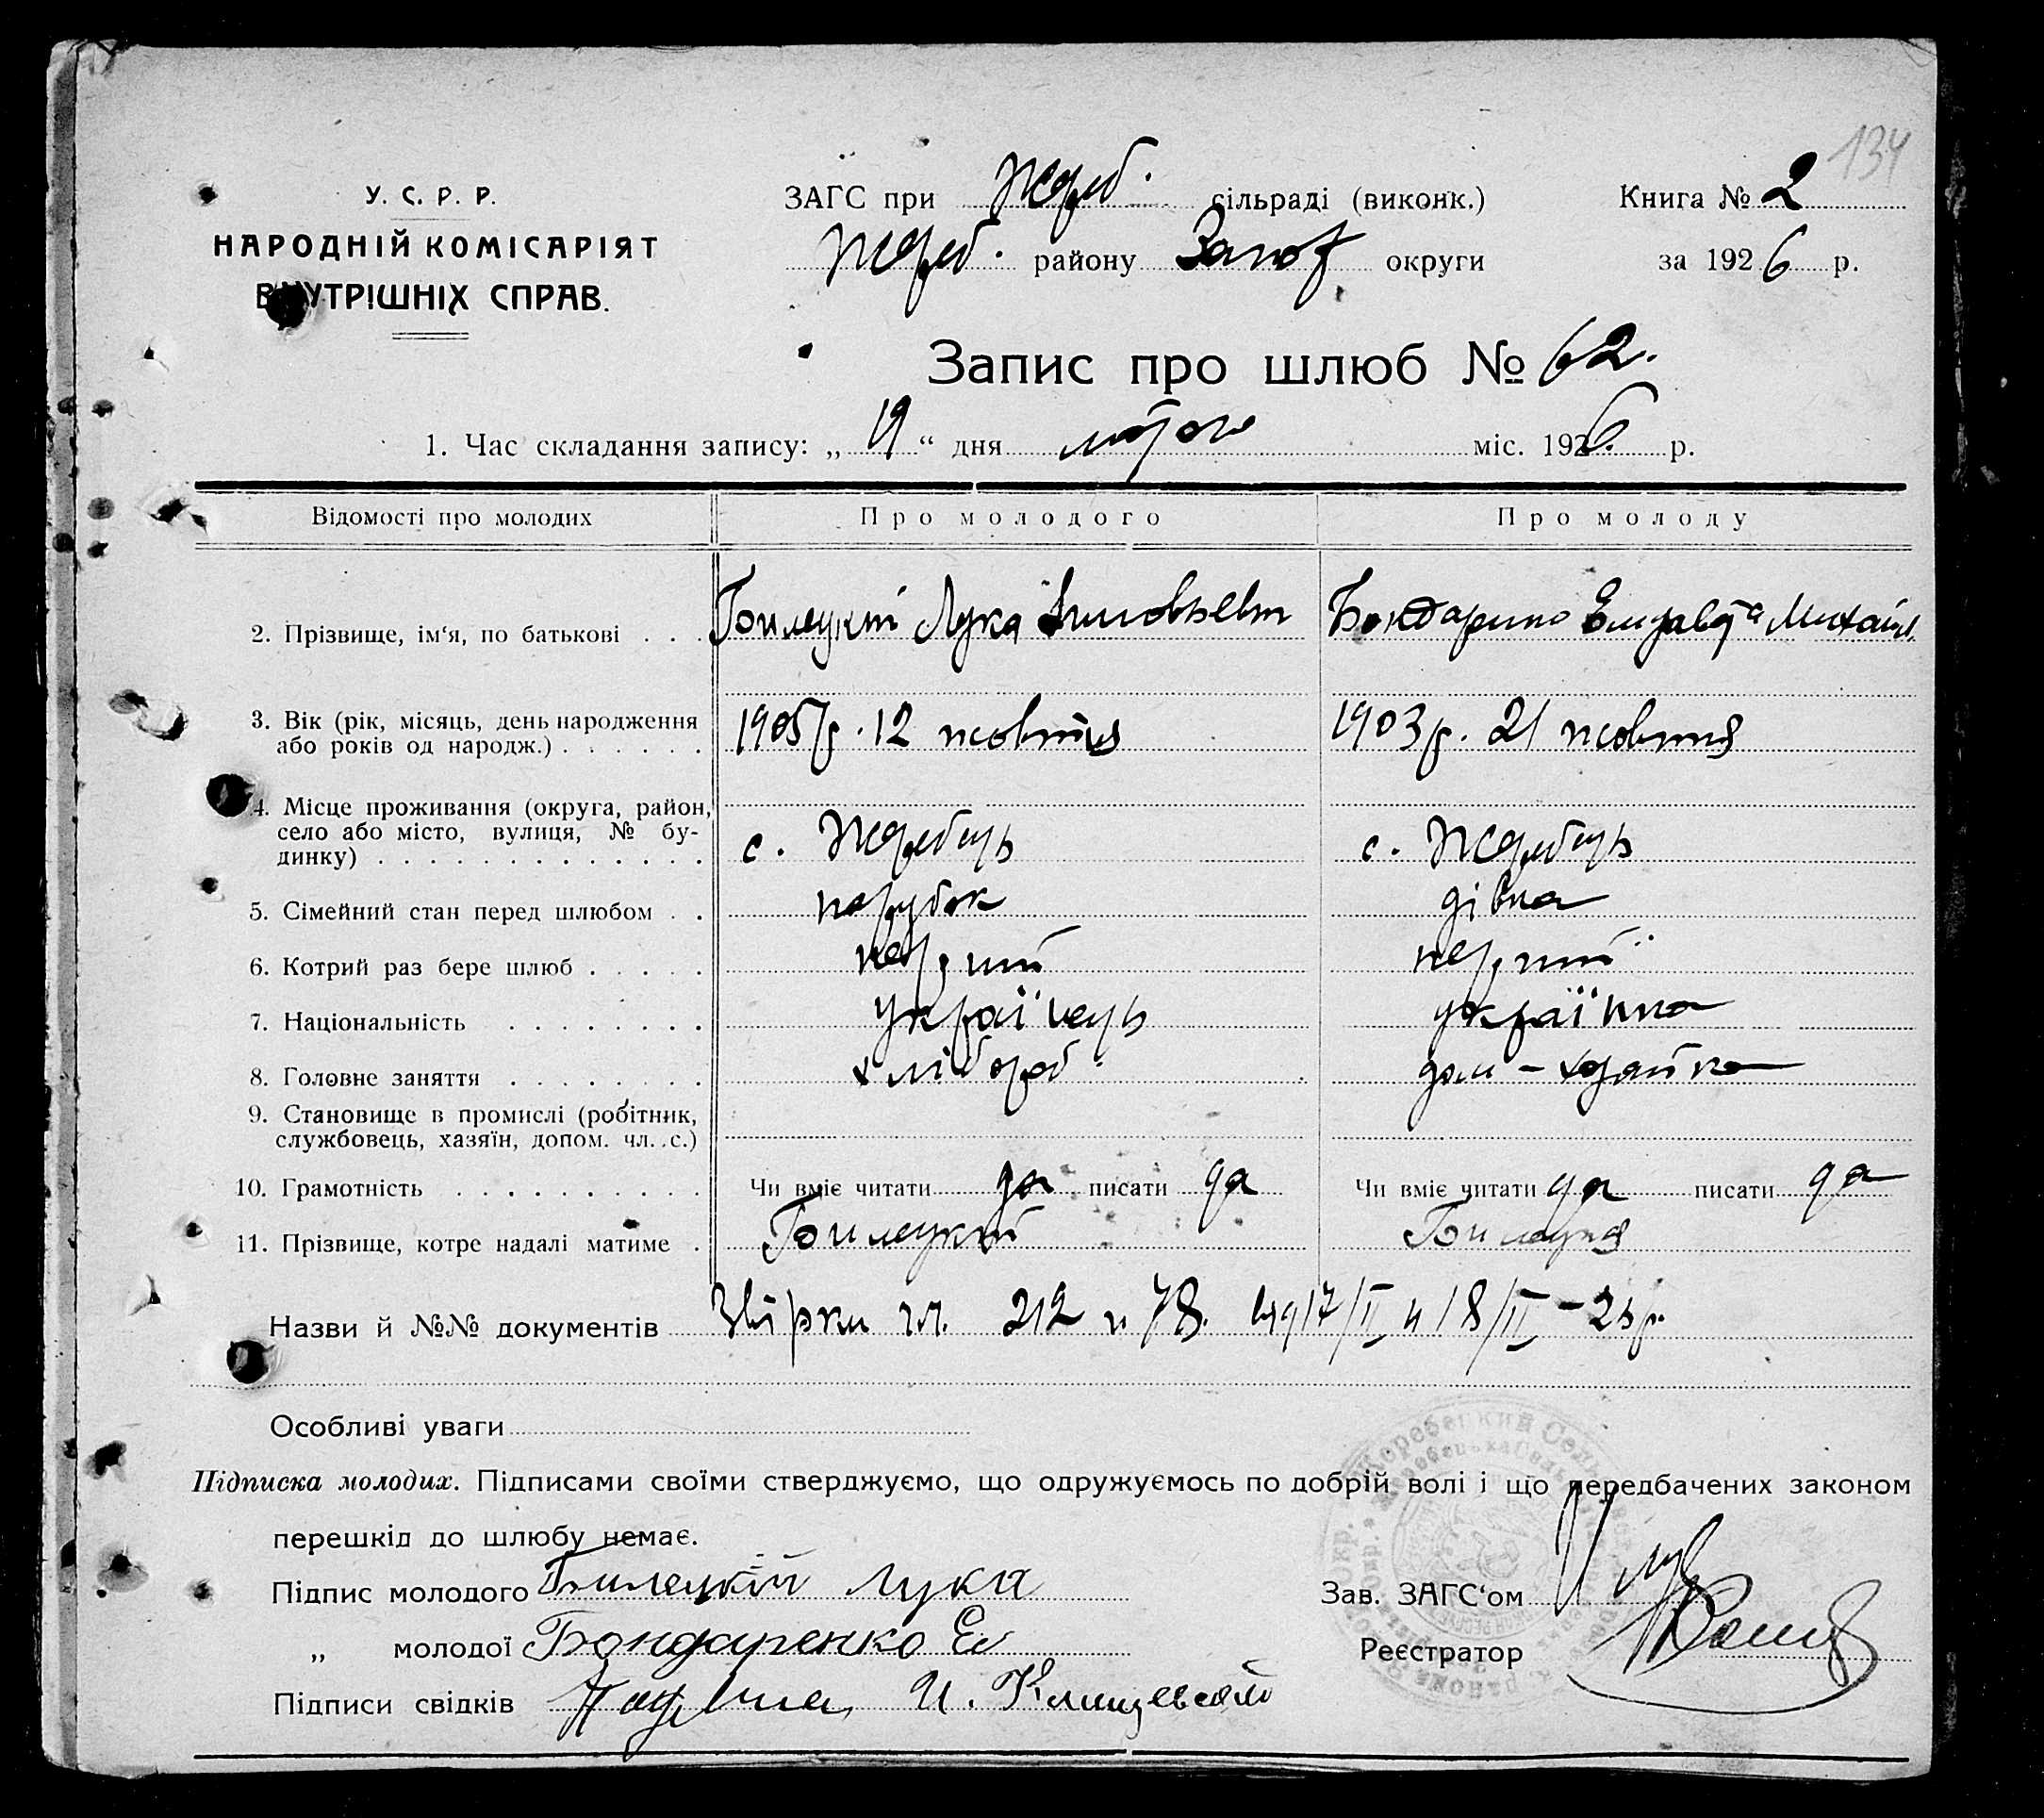 134
У. С. Р. Р.
НАРОДНІЙ КОМІСАРІЯТ
ВНУТРІШНІХ СПРАВ.
ЗАГС при Жереб. сільраді (виконк.)
Жереб. району Запор округи
Книга № 2
за 1926 р.
Запис про шлюб № 62.
1. Час складання запису: „ 19 “ дня лютого міс. 1926 р.
Відомості про молодих Про молодого Про молоду
2. Прізвище, ім‘я, по батькові . . . Билецкій Лука Бондаренко Елизавета Михайл.
3. Вік (рік, місяць, день народження
або років од народж.) . . . . . . 1905 р. 12 жовтня 1903 р. 21 жовтня
4. Місце проживання (округа, район,
село або місто, вулиця, № бу-
динку) . . . . . . . . . . . . . с. Жеребець с. Жеребець
5. Сімейний стан перед шлюбом . . парубок дівка
6. Котрий раз бере шлюб . . . . . перший перший
7. Національність . . . . . . . . українець українка
8. Головне заняття . . . . . . . . хлібороб дом-хозяйка
9. Становище в промислі (робітник,
службовець, хазяїн, допом. чл. с.)
10. Грамотність . . . . . . . . . Чи вміє читати да писати да Чи вміє читати да писати да
11. Прізвище, котре надалі матиме . Билецкій Билецкая
Назви й №№ документів Звірки гл. 212 и 78. від 17/II и 18/II – 26 р.
Особливі уваги
Підписка молодих. Підписами своїми стверджуємо, що одружуємось по добрій волі і що передбачених законом
перешкід до шлюбу немає.
Підпис молодого Билецкій Лука
Зав. ЗАГС‘ом
„ молодої Бондаренко Ел
Реєстратор
Підписи свідків И. Клищевский